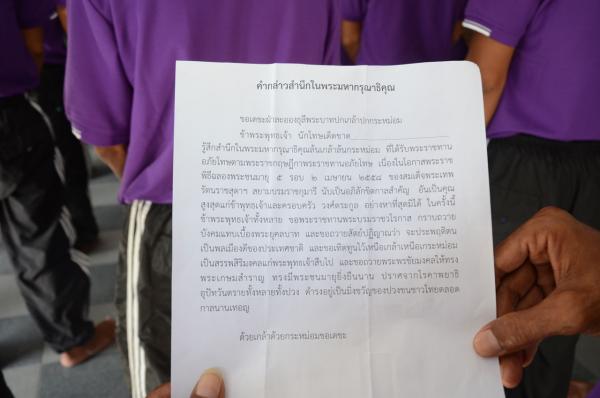 คำกล่าวสำนึกในพระมหากรุณาธิคุณ
ขอเดชะฝ่าละอองธุลีพระบาทปกเกล้าปกกระหม่อม
ข้าพระพุทธเจ้า นักโทษเด็ดขาด
รู้สึกสำนึกในพระมหากรุณาธิคุณล้นเกล้าล้นกระหม่อม ที่ได้รับพระราชทาน
อภัยโทษตามพระราชกฤษฎีกาพระราชทานอภัยโทษ เนื่องในโอกาสพระราช
พิธีฉลองพระชนมายุ ๕ รอบ ๒ เมษายน ๒๕๕๘ ของสมเด็จพระเทพ
รัตนราชสุดาฯ สยามบรมราชกุมารี นับเป็นอภิลักขิตกาลสำคัญ อันเป็นคุณ
สูงสุดแก่ข้าพุทธเจ้าและครอบครัว วงศ์ตระกูล อย่างหาที่สุดมิได้ ในครั้งนี้
ข้าพระพุทธเจ้าทั้งหลาย ขอพระราชทานพระบรมราชวโรกาส กราบถวาย
บังคมแทบเบื้องพระยุคลบาท และขอถวายสัตย์ปฏิญาณว่า จะประพฤติตน
เป็นพลเมืองดีของประเทศชาติ และขอเทิดทูนไว้เหนือเกล้าเหนือกระหม่อม
เป็นสรรพสิริมงคลแก่พระพุทธเจ้าสืบไป และขอถวายพระพรชัยมงคลให้ทรง
พระเกษมสำราญ ทรงมีพระชนมายุยิ่งยืนนาน ปราศจากโรคาพยาธิ
อุปัทวันตรายทั้งหลายทั้งปวง ดำรงอยู่เป็นมิ่งขวัญของปวงชนชาวไทยตลอด
กาลนานเทอญ
ด้วยเกล้าด้วยกระหม่อมขอเดชะ